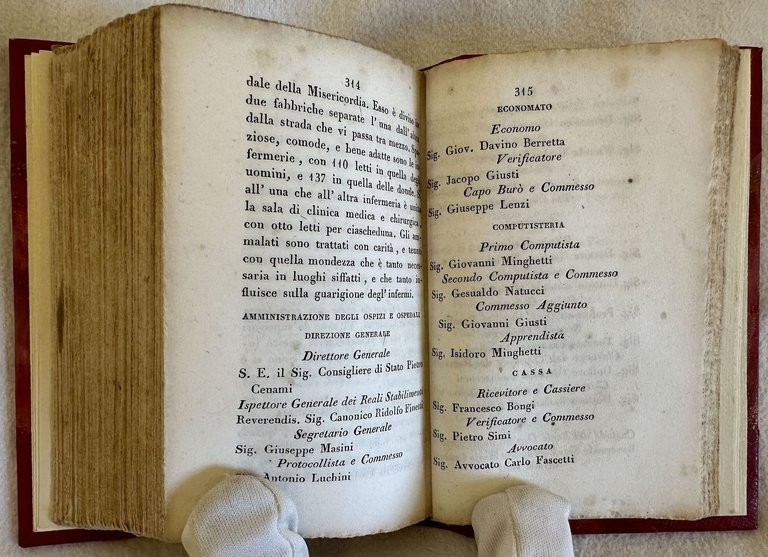 314
dale della Misericordia. Esso è diviso
due fabbriche separate l'una dall'
dalla strada che vi passa tra mezzo.
ziose, comode, e bene adatte sono le
fermerie, con 110 letti in quella
uomini, e 137 in quella delle donne.
all'una che all'altra infermeria è
la sala di clinica medica e chirurgica,
con otto letti per ciascheduna. Gli am-
malati sono trattati con carità, e
con quella mondezza che è tanto neces-
saria in luoghi siffatti, e che tanto in-
fluisce sulla guarigione degl'infermi.
AMMINISTRAZIONE DEGLI OSPIZI E OSPEDALI
DIREZIONE GENERALE
Direttore Generale
S. E. il Sig. Consigliere di Stato Pietro
Cenami
Ispettore Generale dei Reali Stabilimenti
Reverendis. Sig. Canonico Ridolfo
Segretario Generale
Sig. Giuseppe Masini
Protocollista e Commesso
Antonio Luchini
315
ECONOMATO
Economo
Sig. Giov. Davino Berretta
Verificatore
Sig. Jacopo Giusti
Capo Burò e Commesso
Sig. Giuseppe Lenzi
COMPUTISTERIA
Primo Computista
Sig. Giovanni Minghetti
Secondo Computista e Commesso
Sig. Gesualdo Natucci
Commesso Aggiunto
Sig. Giovanni Giusti
Apprendista
Sig. Isidoro Minghetti
CASSA
Ricevitore e Cassiere
Sig. Francesco Bongi
Verificatore e Commesso
Sig. Pietro Simi
Avvocato
Sig. Avvocato Carlo Fascetti